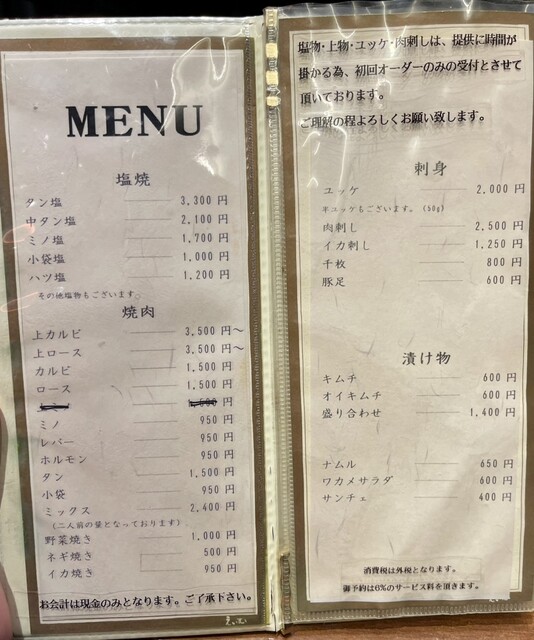 MENU
塩焼
タン塩 3,300 円
中タン塩 2,100 円
ミノ塩 1,700 円
小袋塩 1,000 円
ハツ塩 1,200 円
その他塩物もございます。
焼肉
上カルビ 3,500 円～
上ロース 3,500 円～
カルビ 1,500 円
ロース 1,500 円
円
ミノ 950 円
レバー 950 円
ホルモン 950 円
タン 1,500 円
小袋 950 円
ミックス 2,400 円
(二人前の量となっております)
野菜焼き 1,000 円
ネギ焼き 500 円
イカ焼き 950 円
お会計は現金のみとなります。ご了承下さい。
塩物・上物・ユッケ・肉刺しは、提供に時間が
掛かる為、初回オーダーのみの受付とさせて
頂いております。
ご理解の程よろしくお願い致します。
刺身
ユッケ 2,000 円
半ユッケもございます。(50g)
肉刺し 2,500 円
イカ刺し 1,250 円
千枚 800 円
豚足 600 円
漬け物
キムチ 600 円
オイキムチ 600 円
盛り合わせ 1,400 円
ナムル 650 円
ワカメサラダ 600 円
サンチェ 400 円
消費税は外税となります。
御予約は6%のサービス料を頂きます。